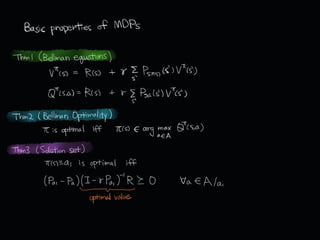 Basic properties of MDPs
Thm1 (Bellman equations)
V^π(s) = R(s) + r Σ_s' P_sπ(s)(s') V^π(s')
Q^π(s,a) = R(s) + r Σ_s' P_sa(s') V^π(s')
Thm2 (Bellman Optimality)
π is optimal iff π(s) ∈ arg max_{a∈A} Q^π(s,a)
Thm3 (Solution set)
π(s)≡a₁ is optimal iff
(P_a₁ - P_a)(I - r P_a₁)⁻¹ R ≥ 0 ∀a ∈ A/a₁
optimal value